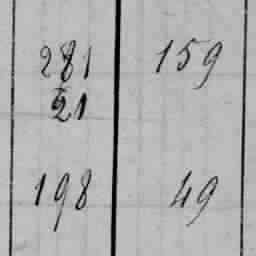 281 159
21
198 49